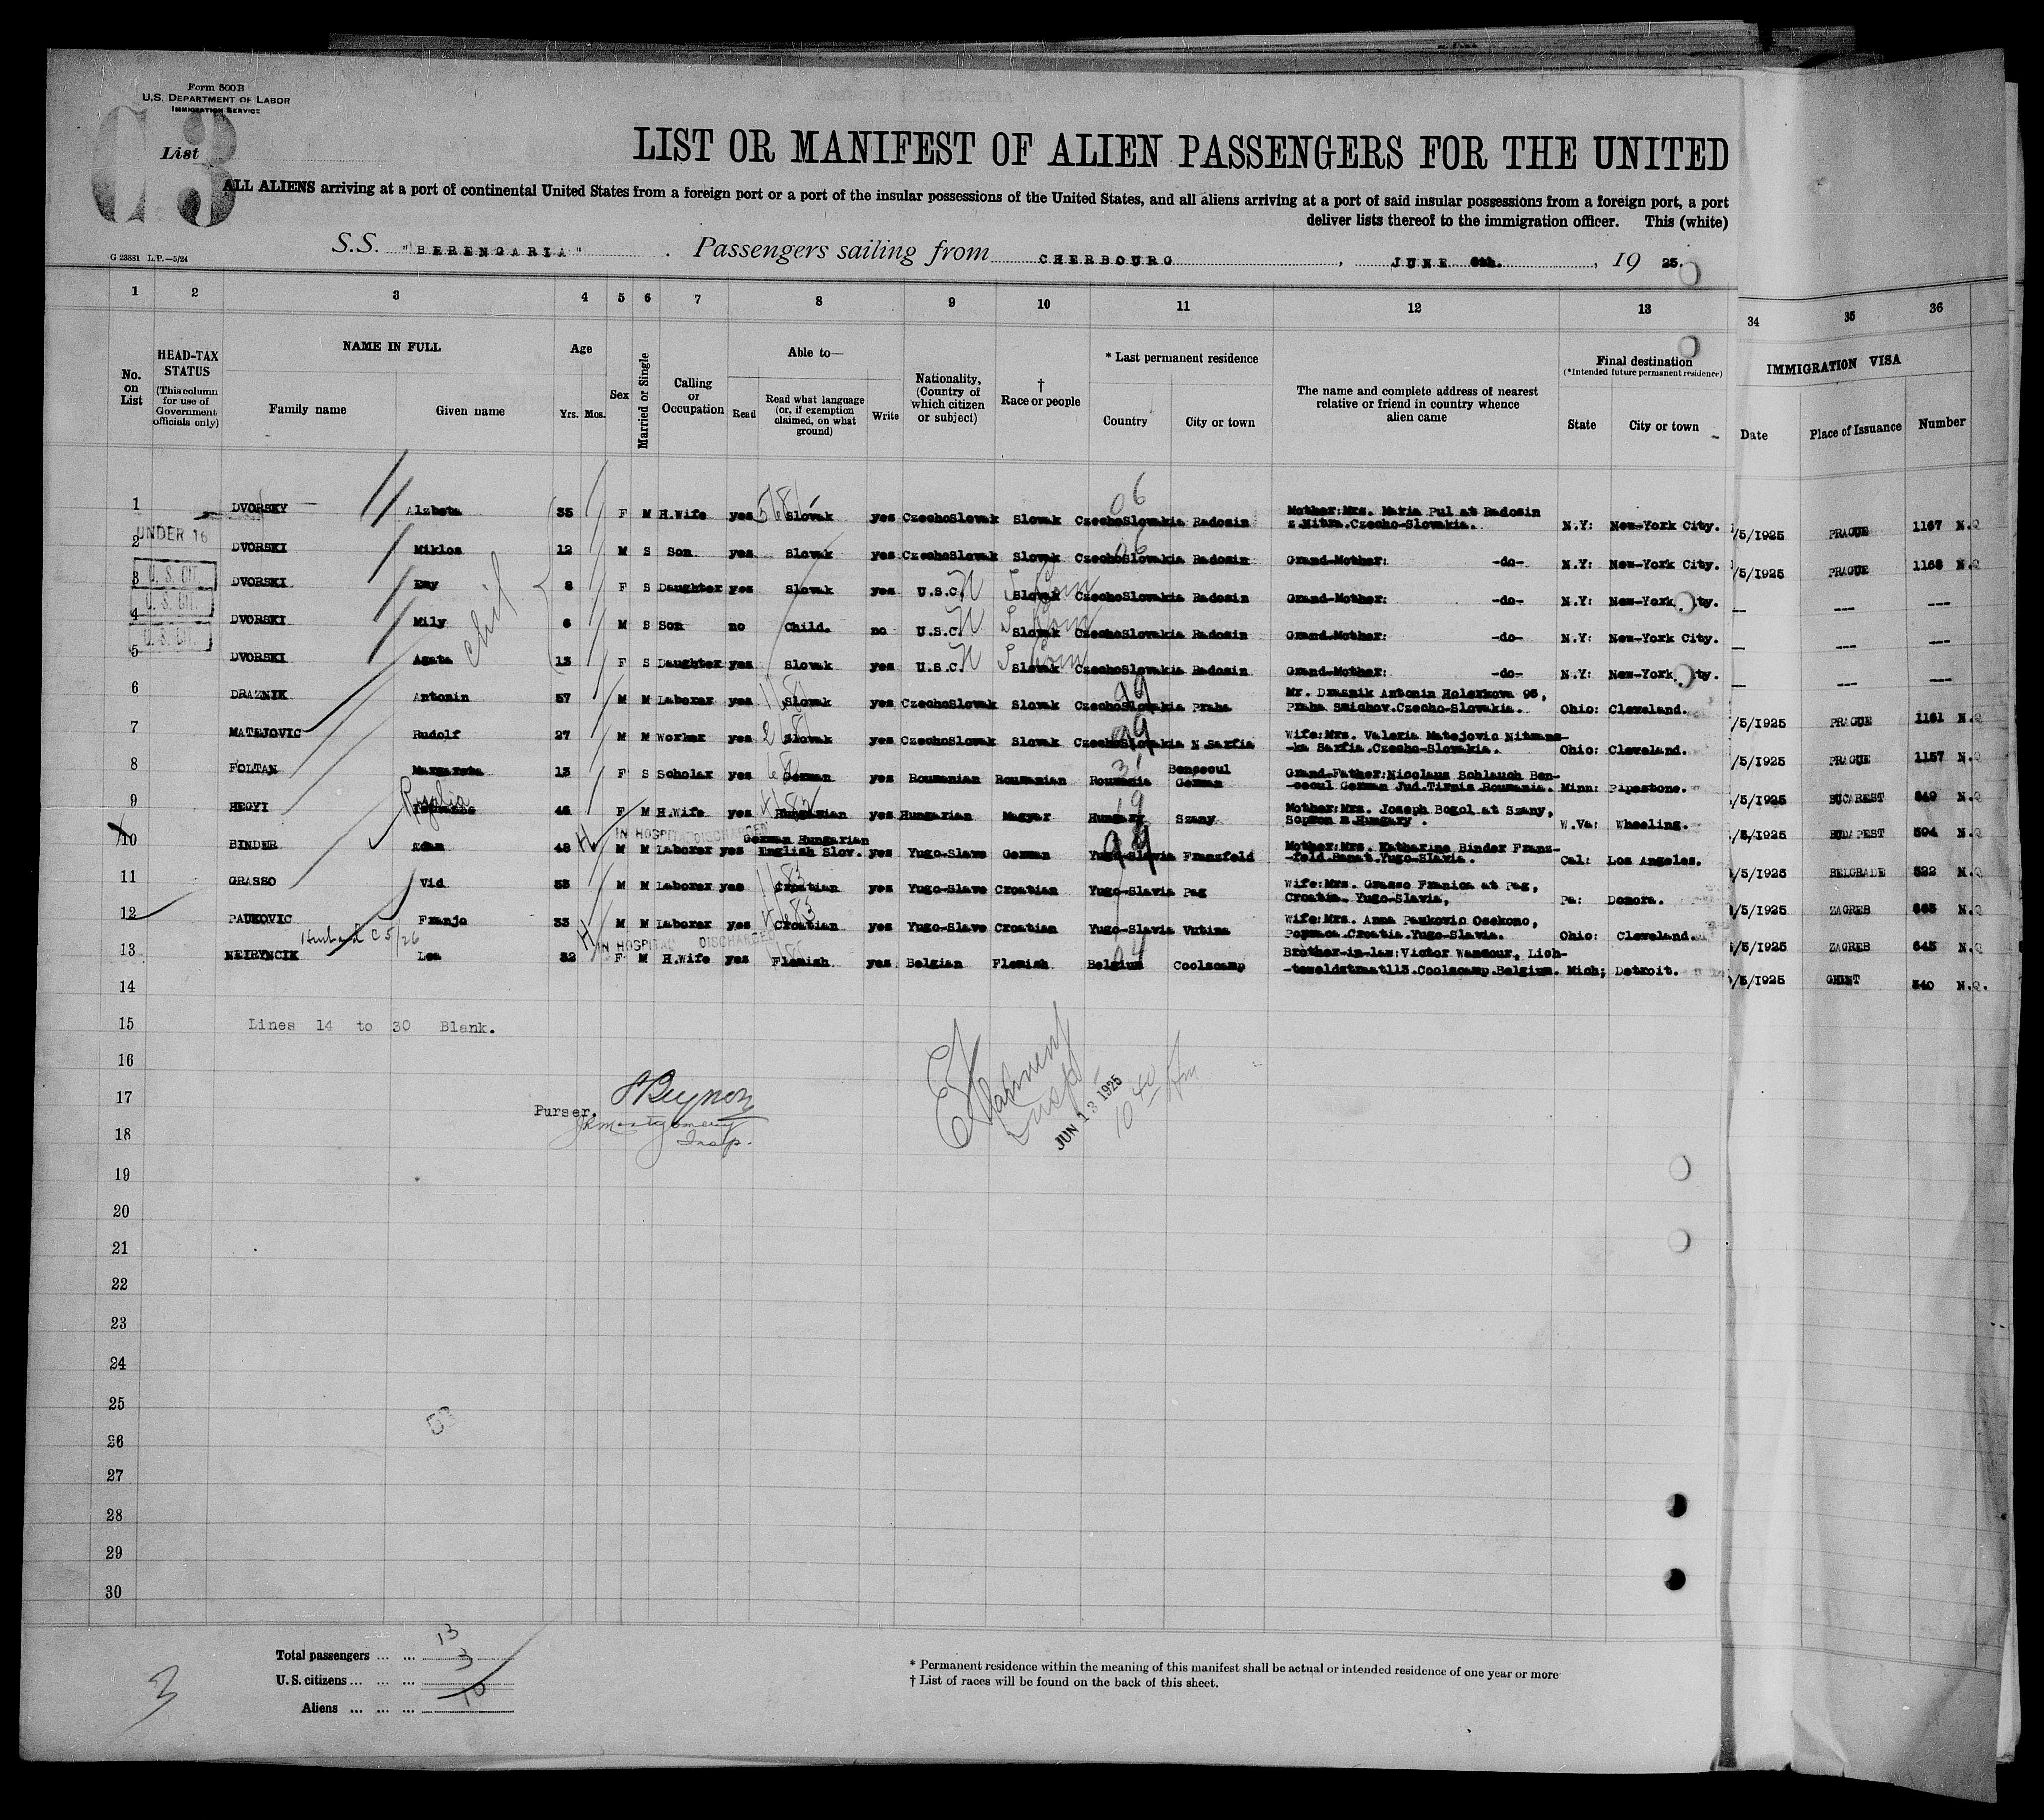 Form 500 B
U.S. DEPARTMENT OF LABOR
IMMIGRATION SERVICE
C3
List
LIST OR MANIFEST OF ALIEN PASSENGERS FOR THE UNITED
ALL ALIENS arriving at a port of continental United States from a foreign port or a port of the insular possessions of the United States, and all aliens arriving at a port of said insular possessions from a foreign port, a port
deliver lists thereof to the immigration officer. This (white)
S.S. "BERENGARIA". Passengers sailing from CHERBOURG, JUNE 6th., 19 25.
G 23881 L.P.—5/24
1 2 3 4 5 6 7 8 9 10 11 12 13 34 35 36
No. on List
HEAD-TAX STATUS (This column for use of Government officials only)
NAME IN FULL Family name Given name
Age Yrs. Mos.
Sex
Married or Single
Calling or Occupation
Able to— Read Read what language (or, if exemption claimed, on what ground) Write
Nationality, (Country of which citizen or subject)
† Race or people
* Last permanent residence Country City or town
The name and complete address of nearest relative or friend in country whence alien came
Final destination (*Intended future permanent residence) State City or town
IMMIGRATION VISA Date Place of Issuance Number
1 DVORSKY Alzbeta 35 F M H.Wife yes Slovak yes CzechoSlovak Slovak CzechoSlovakia Radosin Mother:Mrs. Maria Pul at Radosin z Nitra.Czecho-Slovakia. N.Y: New-York City. /5/1925 PRAGUE 1167 N.Q
UNDER 16
2 DVORSKI Miklos 12 M S Son yes Slovak yes CzechoSlovak Slovak CzechoSlovakia Radosin Grand-Mother: -do- N.Y: New-York City. /5/1925 PRAGUE 1168 N.Q
U.S. CIT.
3 DVORSKI Emy 8 F S Daughter yes Slovak yes U.S.C. Slovak CzechoSlovakia Radosin Grand-Mother: -do- N.Y: New-York ity. -- --- ---
U.S. CIT.
4 DVORSKI Mily 6 M S Son no Child. no U.S.C. Slovak CzechoSlovakia Radosin Grand-Mother: -do- N.Y: New-York City. -- --- ---
U.S. CIT.
5 DVORSKI Agata 13 F S Daughter yes Slovak yes U.S.C. Slovak CzechoSlovakia Radosin Grand-Mother: -do- N.Y: New-York ity. -- --- ---
6 DRAZNIK Antonin 37 M M Laborer yes Slovak yes CzechoSlovak Slovak CzechoSlovakia Praha Mr. Draznik Antonin Holerkova 96, Praha Smichov.Czecho-Slovakia. Ohio: Cleveland. /5/1925 PRAGUE 1161 N.Q
7 MATEJOVIC Rudolf 27 M M Worker yes Slovak yes CzechoSlovak Slovak CzechoSlovakia N.Sarfia Wife:Mrs. Valeria Matejovic Nitrans--ka Sarfia.Czecho-Slovakia. Ohio: Cleveland. /5/1925 PRAGUE 1157 N.Q
8 FOLTAN Margareta 13 F S Scholar yes German yes Roumanian Roumanian Roumania Bencecul German Grand-Father:Nicolaus Schlauch Ben--cecul German Jud.Timis Roumania. Minn: Pipestone. /5/1925 BUCAREST 649 N.Q
9 HEGYI Rozalia 46 F M H.Wife yes Hungarian yes Hungarian Magyar Hungary Szany Mother:Mrs. Joseph Bogol at Szany, Sopron m Hungary. W.Va: Wheeling. /5/1925 BUDAPEST 594 N.Q
IN HOSPITAL DISCHARGED
10 BINDER Adam 48 M M Laborer yes German Hungarian English Slov. yes Yugo-Slave German Yugo-Slavia Franzfeld Mother:Mrs. Katharine Binder Franz--feld.Banat.Yugo-Slavia. Cal: Los Angeles. /5/1925 BELGRADE 522 N.Q
11 GRASSO Vid 33 M M Laborer yes Croatian yes Yugo-Slave Croatian Yugo-Slavia Pag Wife:Mrs. Grasso Franica at Pag, Croatia. Yugo-Slavia, Pa: Donora. /5/1925 ZAGREB 663 N.Q
12 PAUKOVIC Franjo 33 M M Laborer yes Croatian yes Yugo-Slave Croatian Yugo-Slavia Vutina Wife:Mrs. Anna Paukovic Osekono, Popmaca.Croatia.Yugo-Slavia. Ohio: Cleveland. /5/1925 ZAGREB 645 N.Q
Husband C 5/26
IN HOSPITAL DISCHARGED
13 NEIRYNCIK Lea 32 F M H.Wife yes Flemish yes Belgian Flemish Belgium Coolscamp Brother-in-law:Victor Wandour, Lich--teveldstraat113.Coolscamp.Belgium. Mich; Detroit. /5/1925 GHENT 340 N.Q.
14
15 Lines 14 to 30 Blank.
16
17 Purser.
18 JRMontgomery Insp.
JUN 13 1925
10 40 Am
19
20
21
22
23
24
25
53
26
27
28
29
30
Total passengers ... ... 13
U.S. citizens ... ... ... 3
Aliens ... ... ... 10
3
* Permanent residence within the meaning of this manifest shall be actual or intended residence of one year or more
† List of races will be found on the back of this sheet.